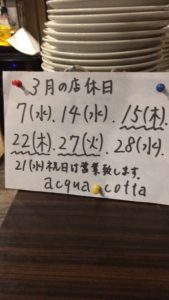 3月の店休日
7(水).14(水).15(木).
22(木).27(火).28(水).
21(水)祝日は営業致します。
acqua cotta